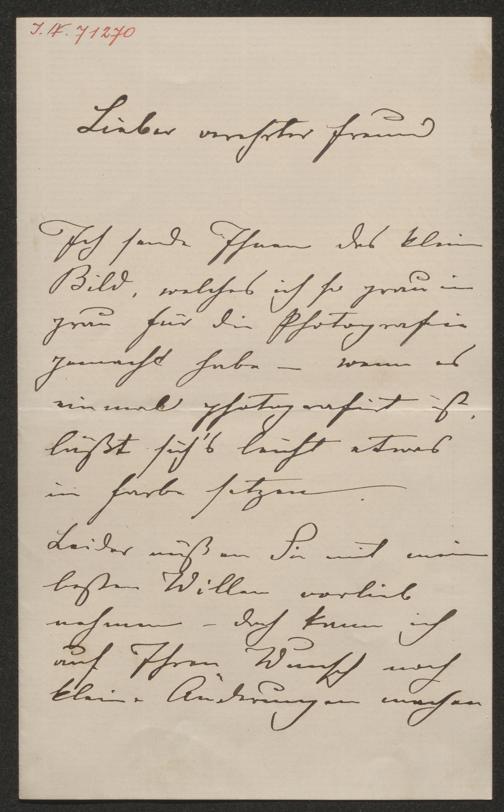 J. N. 71270
Lieber verehrter Freund
Ich sende Ihnen das klein
Bild, welches ich so grau in
grau für die Photografie
gemacht habe – wenn es
einmal photografirt ist,
läßt sich's leicht etwas
in Farbe setzen.
Leider müßen Sie mit mein
besten Willen vorlieb
nehmen – doch kann ich
auf Ihren Wunsch noch
kleine Änderungen machen